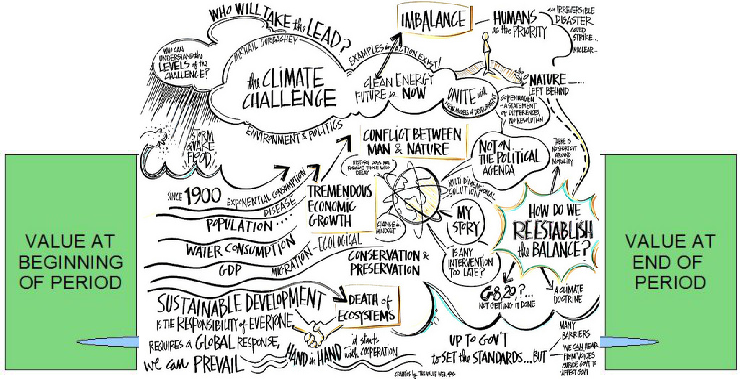 WHO WILL TAKE the LEAD?
WHO CAN
UNDERSTAND
LEVELS of the
CHALLENGE?
the CLIMATE
CHALLENGE
ENVIRONMENT & POLITICS
CLEAN ENERGY
FUTURE is NOW
IMBALANCE
HUMANS
is the PRIORITY
IRREVERSIBLE
DISASTER
COULD
STRIKE...
NUCLEAR...
the NATURE...
LEFT BEHIND
UNITE with
CONFLICT BETWEEN
MAN & NATURE
NOT ON
THE POLITICAL
AGENDA
STORM
FLOOD
SINCE 1900
EXPONENTIAL CONSUMPTION
DISEASE
POPULATION....
WATER CONSUMPTION
GDP
MIGRATION - ECOLOGICAL
TREMENDOUS
ECONOMIC
GROWTH
MY
STORY
IS ANY
INTERVENTION
TOO LATE?
CONSERVATION &
PRESERVATION
HOW DO WE
REESTABLISH
the BALANCE?
VALUE AT
BEGINNING
OF PERIOD
VALUE AT
END OF
PERIOD
G8, 20,?...
NOT GETTING IT DONE
A CLIMATE
DOCTRINE
SUSTAINABLE DEVELOPMENT
IS THE RESPONSIBILITY of EVERYONE
REQUIRES A GLOBAL RESPONSE,
we can PREVAIL
DEATH of
ECOSYSTEMS
HAND in HAND
it starts
with COOPERATION
UP TO GOV'T
to SET the STANDARDS... BUT
MANY
BARRIERS